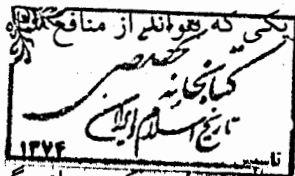 یکی که هواند از منافع
کتابخانه تخصصی
تاریخ اسلام و ایران
تاسیس ۱۳۷۴